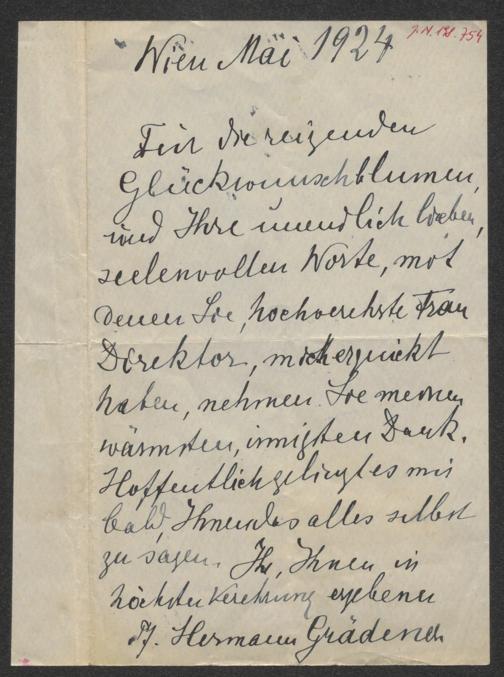 Wien Mai 1924
J.N. 121.754
Für die reizenden
Glückwunschblumen,
und Ihre unendlich lieben,
seelenvollen Worte, mit
denen Sie, hochverehrte Frau
Direktor, mich erquickt
haben, nehmen Sie meinen
wärmsten, innigsten Dank.
Hoffentlich gelingt es mir
bald, Ihnen das alles selbst
zu sagen. Ihr, Ihnen in
höchster Verehrung ergebener
Hermann Grädener